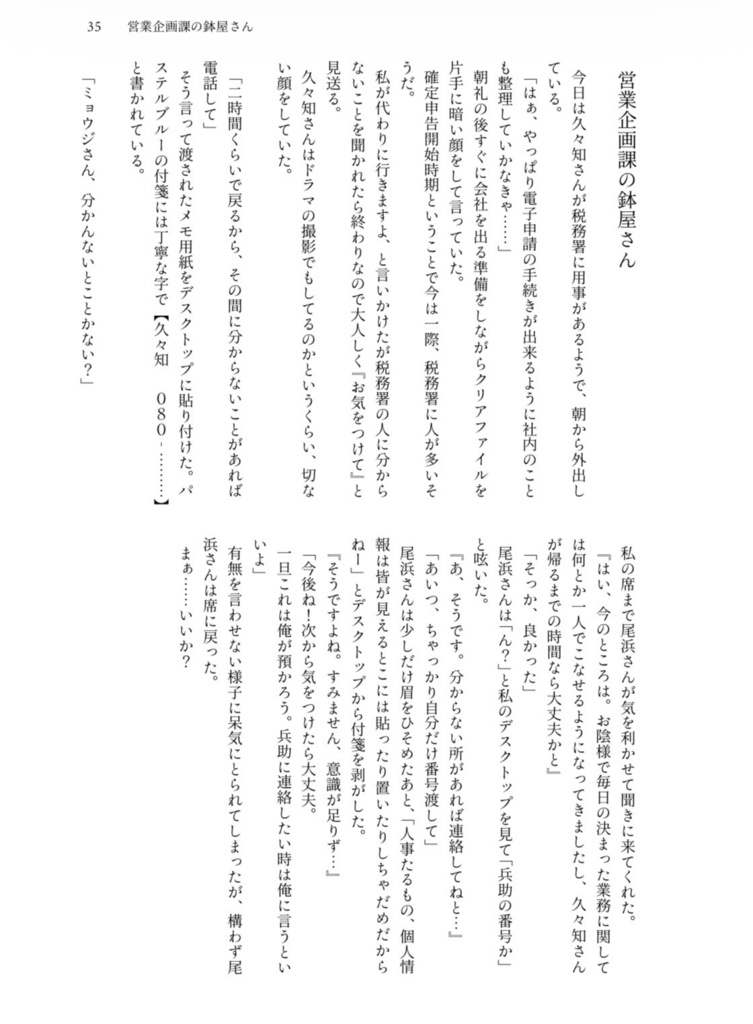 35　営業企画課の鉢屋さん
営業企画課の鉢屋さん
　今日は久々知さんが税務署に用事があるようで、朝から外出し
ている。
「はぁ、やっぱり電子申請の手続きが出来るように社内のこと
も整理していかなきゃ……」
　朝礼の後すぐに会社を出る準備をしながらクリアファイルを
片手に暗い顔をして言っていた。
　確定申告開始時期ということで今は一際、税務署に人が多いそ
うだ。
　私が代わりに行きますよ、と言いかけたが税務署の人に分から
ないことを聞かれたら終わりなので大人しく『お気をつけて』と
見送る。
　久々知さんはドラマの撮影でもしてるのかというくらい、切な
い顔をしていた。
「二時間くらいで戻るから、その間に分からないことがあれば
電話して」
　そう言って渡されたメモ用紙をデスクトップに貼り付けた。パ
ステルブルーの付箋には丁寧な字で【久々知　０８０-………】
と書かれている。
「ミョウジさん、分かんないとことかない？」
　私の席まで尾浜さんが気を利かせて聞きに来てくれた。
『はい、今のところは。お陰様で毎日の決まった業務に関して
は何とか一人でこなせるようになってきましたし、久々知さん
が帰るまでの時間なら大丈夫かと』
「そっか、良かった」
　尾浜さんは「ん？」と私のデスクトップを見て「兵助の番号か」
と呟いた。
『あ、そうです。分からない所があれば連絡してねと…』
「あいつ、ちゃっかり自分だけ番号渡して」
　尾浜さんは少しだけ眉をひそめたあと、「人事たるもの、個人情
報は皆が見えるとこには貼ったり置いたりしちゃだめだから
ねー」とデスクトップから付箋を剥がした。
『そうですよね。すみません、意識が足りず…』
「今後ね！次から気をつけたら大丈夫。
　一旦これは俺が預かろう。兵助に連絡したい時は俺に言うとい
いよ」
　有無を言わせない様子に呆気にとられてしまったが、構わず尾
浜さんは席に戻った。
　まぁ……いいか？